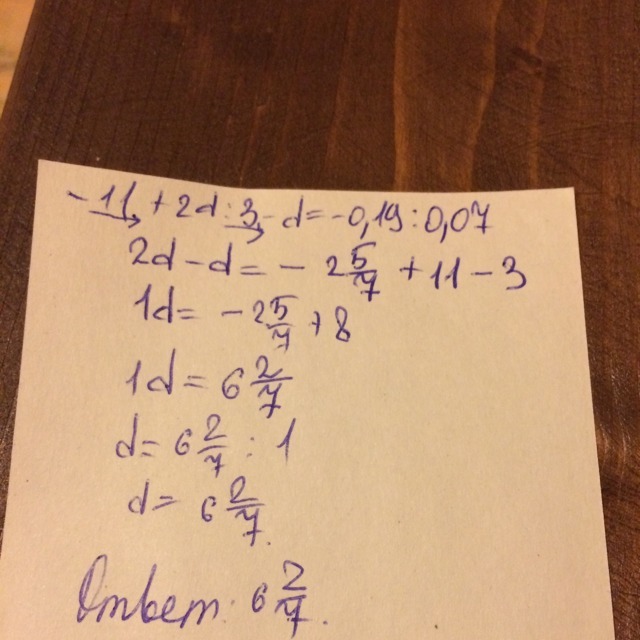 -11 + 2d : 3 - d = -0,19 : 0,07
2d - d = - 2 5/7 + 11 - 3
1d = - 2 5/7 + 8
1d = 6 2/7
d = 6 2/7 : 1
d = 6 2/7.
Ответ: 6 2/7.